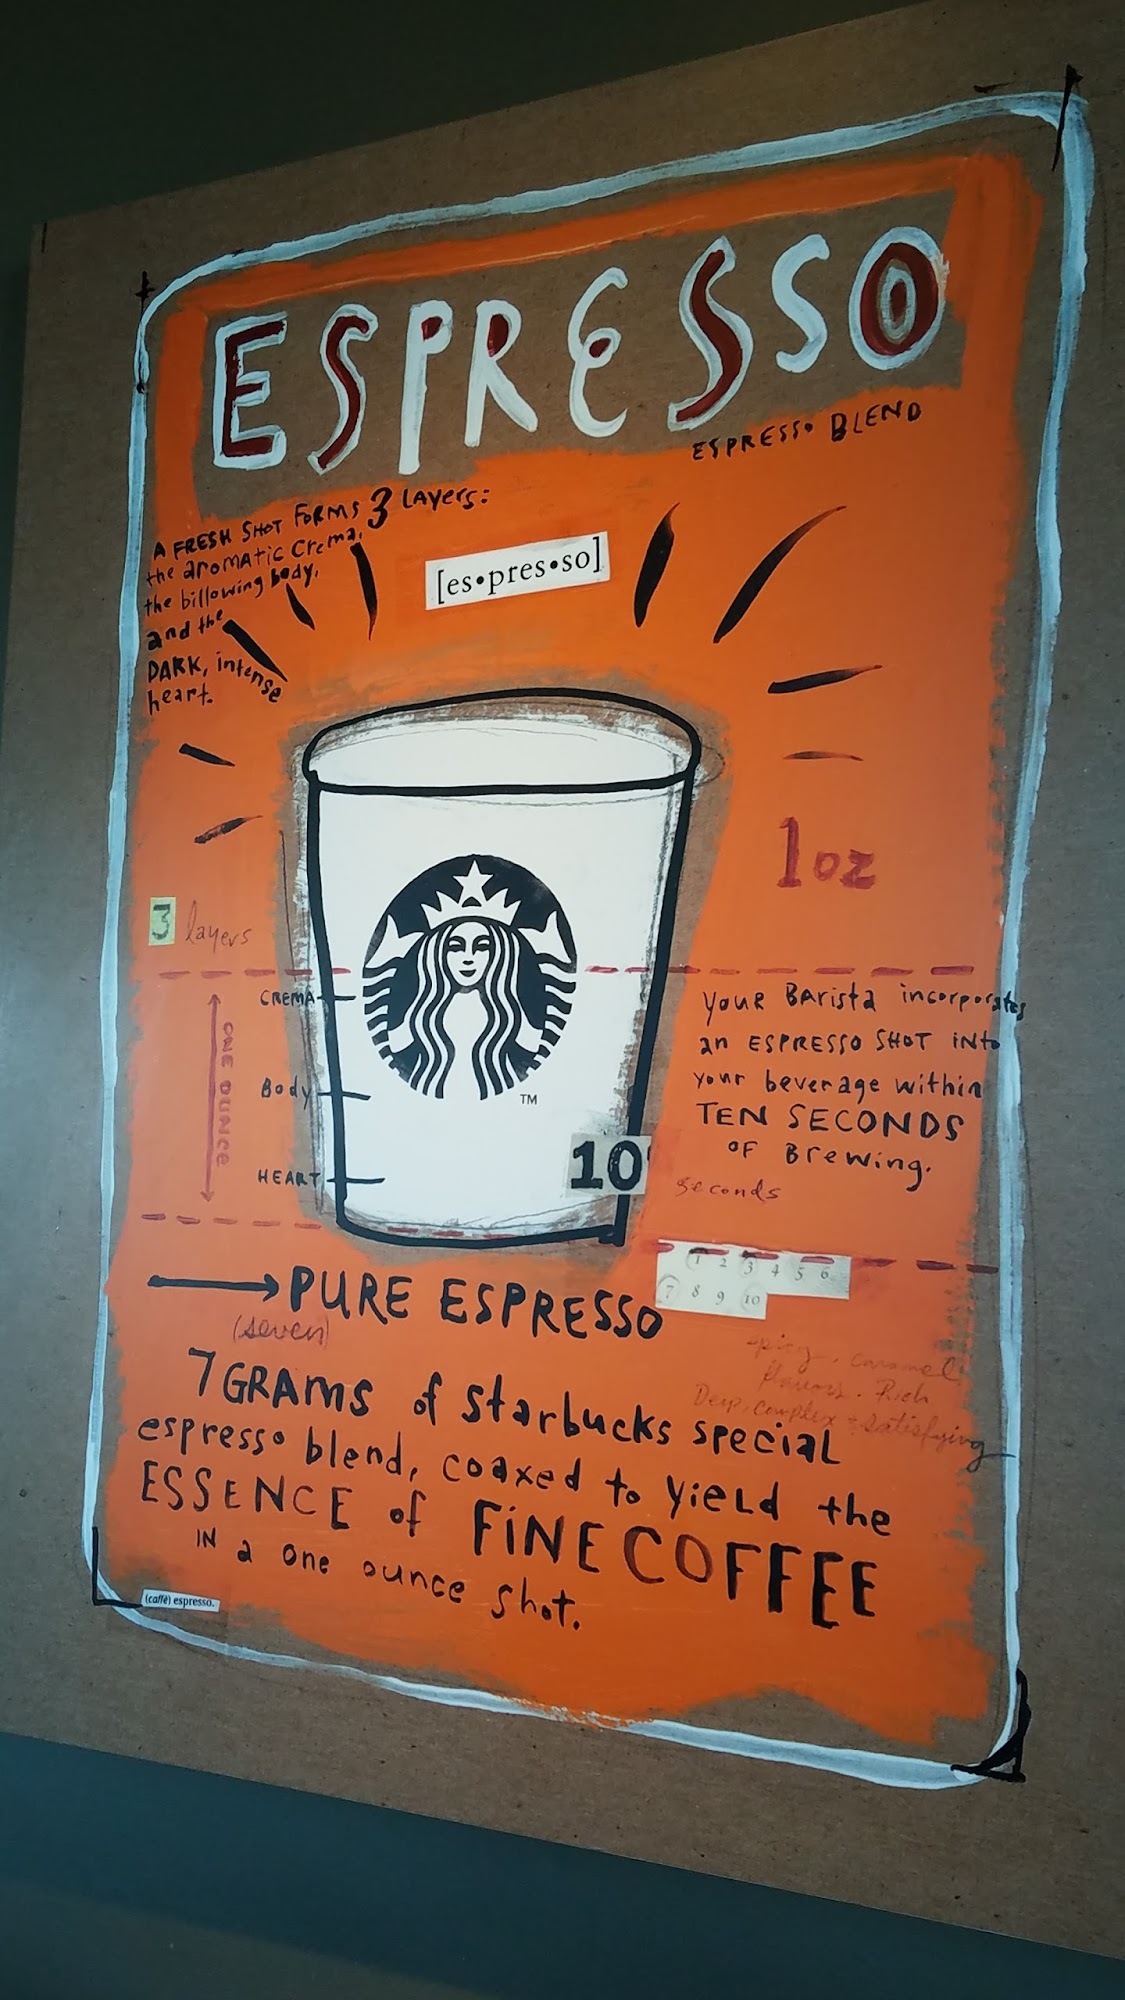 ESPRESSO
ESPRESSO BLEND
A FRESH SHOT FORMS 3 LAYERS:
the aromatic Crema,
the billowing body,
and the
DARK, intense
heart.
[es•pres•so]
1oz
3 layers
CREMA
Body
HEART
ONE OUNCE
TM
Your Barista incorporates
an ESPRESSO SHOT INto
your beverage within
TEN SECONDS
OF Brewing.
10
seconds
1 2 3 4 5 6
7 8 9 10
PURE ESPRESSO
(seven)
7 GRAMS of Starbucks special
espresso blend, coaxed to yield the
ESSENCE of FINE COFFEE
IN a one ounce shot.
caramel
flavors. Rich
Deep, complex + satisfying
(caffè) espresso.